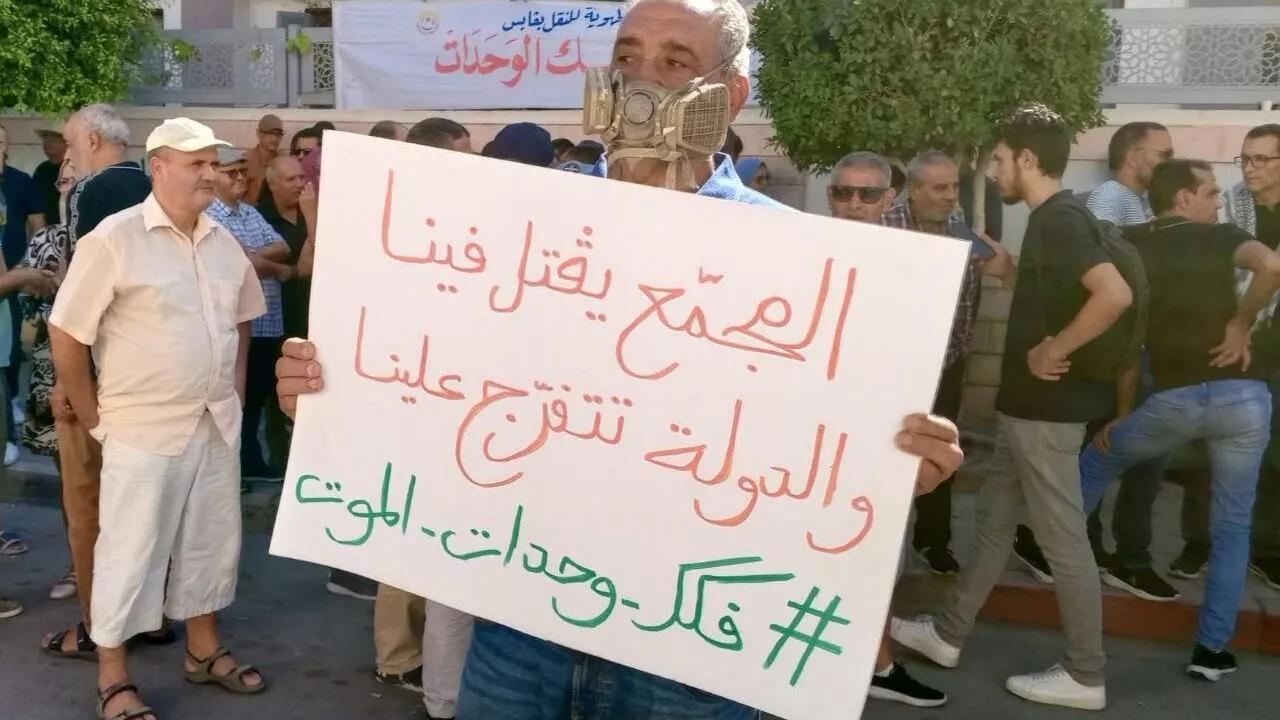 للنقل بقابس
الوَحَدَاتْ
المجمّع يڨتل فينا
والدولة تتفرّج علينا
# فكك-وحدات-الموت